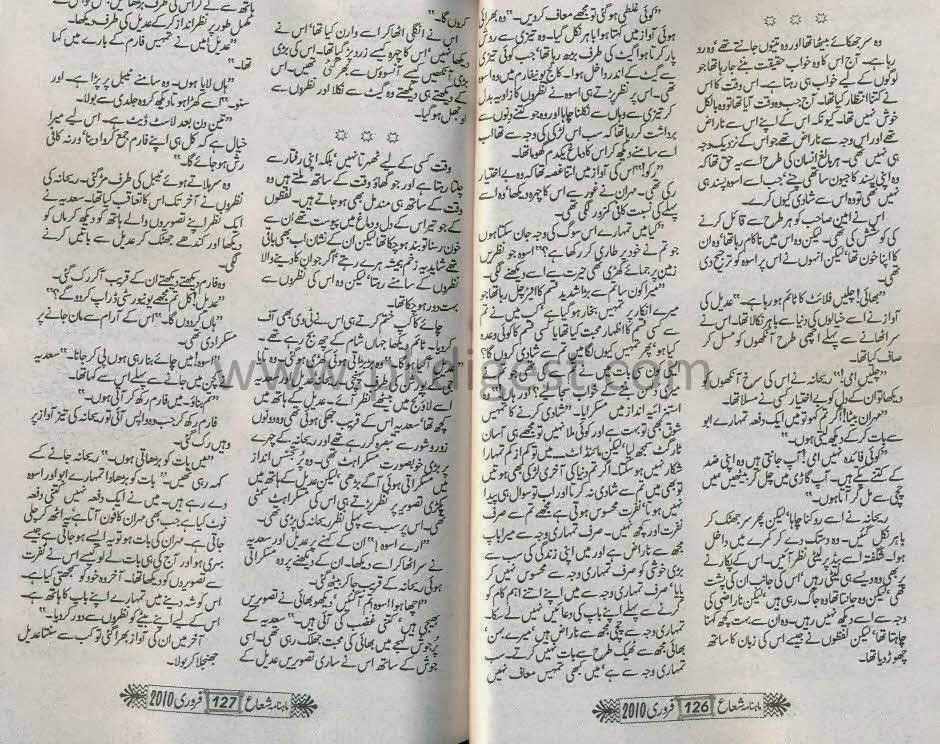 وہ سر جھکائے بیٹھا تھا اور وہ تینوں جانتے تھے وہ رو
رہا ہے۔ آج اس کا وہ خواب حقیقت بننے جا رہا تھا جو
لوگوں کے لیے خواب ہی رہتا ہے۔ اس وقت کا اس
نے کتنا انتظار کیا تھا۔ آج جب وہ وقت آیا تھا تو وہ بالکل
خوش نہیں تھا۔ کیونکہ اس کے اپنے اس سے ناراض
تھے اور اس وجہ سے ناراض تھے جو اس کے نزدیک وجہ
ہی نہیں تھی۔ ہر بالغ انسان کی طرح اسے یہ حق تھا کہ
وہ اپنی پسند کا جیون ساتھی چنے، جب اسے اسوہ پسند ہی
نہیں تھی تو وہ اس سے شادی کیوں کرے۔
اس نے امین صاحب کو ہر طرح سے قائل کرنے
کی کوشش کی تھی۔ لیکن وہ اس میں ناکام رہا تھا، وہ ان
کا اپنا خون تھا، لیکن انہوں نے اس پر اسوہ کو ترجیح دی
تھی۔
"بھائی! چلیں فلائٹ کا ٹائم ہو رہا ہے۔" عدیل کی
آواز نے اسے خیالوں کی دنیا سے باہر نکالا تھا۔ اس نے
سر اٹھانے سے پہلے اچھی طرح آنکھوں کو مسل کر
صاف کیا تھا۔
"چلیں امی!" ریحانہ نے اس کی سرخ آنکھوں کو
دیکھا تو ان کے دل کو بے اختیار کسی نے مسلا تھا۔
"مہران بیٹا! اگر تم کہو تو میں ایک دفعہ تمہارے ابو
سے بات کر کے دیکھ لیتی ہوں۔"
"کوئی فائدہ نہیں امی! آپ جانتی ہیں وہ اپنی ضد
کے کتنے پکے ہیں۔ آپ گاڑی میں چل کر بیٹھیں میں
چچی سے مل کر آتا ہوں۔"
ریحانہ نے اسے روکنا چاہا، لیکن پھر سر جھٹک کر
باہر نکل گئیں۔ وہ دستک دے کر کمرے میں داخل
ہوا۔ شگفتہ اسے بیڈ پر لیٹی نظر آئیں۔ اس کے پکارنے
پر بھی وہ ویسے ہی لیٹی رہیں، اس کی جانب ان کی پشت
تھی، لیکن وہ جانتا تھا وہ جاگ رہی ہیں، لیکن ناراضی کی
وجہ سے اسے دیکھ نہیں رہیں۔ وہ ان سے بہت کچھ کہنا
چاہتا تھا، لیکن لفظوں نے جیسے اس کی زبان کا ساتھ
چھوڑ دیا تھا۔
"کوئی غلطی ہو گئی تو مجھے معاف کر دیں۔" وہ بھرائی
ہوئی آواز میں کہتا ہوا باہر نکل گیا۔ وہ تیزی سے روش
پار کرتا ہوا گیٹ کی طرف بڑھ رہا تھا، جب کوئی تیزی
سے گیٹ کے اندر داخل ہوا۔ کالج یونیفارم میں وہ اسوہ
تھی۔ اس پر نظر پڑتے ہی اسوہ نے نظروں کا زاویہ بدل
کر تیزی سے وہاں سے نکلنا چاہا اور وہ جو کتنے دنوں سے
برداشت کر رہا تھا کہ سب اس لڑکی کی وجہ سے تھا اب
اسے سامنے دیکھ کر اس کا دماغ یکدم گھوما تھا۔
"رکو!" اس کی آواز میں اتنا غصہ تھا کہ وہ بے اختیار
رکی تھی۔ مہران نے غور سے اس کا چہرہ دیکھا، وہ اسے
پہلے کی نسبت کافی کمزور لگی تھی۔
"کیا میں تمہارے اس سوگ کی وجہ جان سکتا ہوں
جو تم نے خود پر طاری کر رکھا ہے؟" اسوہ جو نظریں
زمین پر جمائے کھڑی تھی حیرت سے اسے دیکھنے لگی۔
"میرا کون سا تم سے بڑا شدید قسم کا افیئر چل رہا تھا جو
میرے انکار پر تمہیں بخار ہو گیا ہے، کب میں نے تم
سے کسی قسم کا اظہار محبت کیا تھا یا کسی قسم کا کوئی وعدہ
کیا ہو، پھر تمہیں کیوں لگا میں تم سے شادی کروں گا؟
کس کی بات میں نے ایسی کی تھی جس کی وجہ سے تم نے
میری دلہن بننے کے خواب سجائے؟" اور ہاں! وہ
استہزائیہ انداز میں مسکرایا۔ "شادی کرنے کا تمہیں
شوق بھی تو بہت ہے اور کوئی ملا نہیں تو مجھے ہی آسان
ٹارگٹ سمجھ لیا، لیکن مائنڈ اٹ، میں تو کم از کم تمہارا
شکار نہیں ہو سکتا۔ اگر تم دنیا کی آخری لڑکی بھی ہو تیں
تو بھی میں تم سے شادی نہ کرتا اور اب تو سوال ہی پیدا
نہیں ہوتا، نفرت محسوس ہوتی ہے مجھے تم سے صرف
نفرت اور کچھ نہیں۔ صرف تمہاری وجہ سے میرا باپ
مجھ سے ناراض ہے اور میں اپنی زندگی کی سب سے
بڑی خوشی کو صرف تمہاری وجہ سے محسوس نہیں کر
پایا، صرف تمہاری وجہ سے میں اپنے اتنے اہم کام کو
کرنے سے پہلے اپنے باپ کی دعائیں نہیں لے سکا۔
تمہاری وجہ سے چچی مجھ سے ناراض ہیں، میرے بہن،
بھائی مجھ سے ٹھیک طرح سے بات نہیں کرتے، سب
تمہاری وجہ سے ہے، میں کبھی تمہیں معاف نہیں
ماہنامہ شعاع 126 فروری 2010
کروں گا۔"
اس نے انگلی اٹھا کر اسے وارن کیا تھا، اس نے
دیکھا نہیں، اس کا چہرہ کیسے زرد پڑ گیا تھا۔ اس کی بڑی
بڑی آنکھیں کیسے آنسوؤں سے بھر گئی تھیں۔ اس
کے دیکھتے ہی دیکھتے وہ گیٹ سے نکلا اور نظروں سے
اوجھل ہو گیا۔
وقت کسی کے لیے ٹھہرتا نہیں، بلکہ اپنی رفتار سے
چلتا رہتا ہے اور جو گھاؤ وقت کے ساتھ ملتے ہیں وہ
وقت کے ساتھ ہی مندمل بھی ہو جاتے ہیں۔ لفظوں
کے جو تیر اس کے دل و دماغ میں پیوست تھے ان سے
خون رسنا تو بند ہو چکا تھا، لیکن ان کے نشان اب بھی باقی
تھے شاید یہ زخم ہمیشہ ہرے رہتے، اگر جو ان کو دینے والا
نظروں کے سامنے رہتا، لیکن وہ اس کی نظروں سے
بہت دور ہو چکا تھا۔
چائے کا کپ ختم کرتے ہی اس نے ٹی وی بھی آف
کر دیا۔ ٹائم دیکھا جہاں شام کے چھ بج رہے تھے۔
"عدیل ابھی تک نہیں آیا۔" وہ بڑبڑاتی ہوئی کھڑی ہوئی۔ وہ باہر
اسے لاؤنج میں بیٹھے نظر آئے۔ عدیل کے ہاتھ میں
کچھ تھا، سعدیہ اس کے قریب جھکی ہوئی تھی وہ دونوں
زور و شور سے تبصرہ کر رہے تھے اور ریحانہ کے چہرے
پر بڑی خوبصورت مسکراہٹ تھی۔ وہ پر تجسس انداز
میں مسکراتی ہوئی آگے بڑھی، لیکن عدیل کے ہاتھ میں
پکڑی تصویر پر نظر پڑتے ہی اس کی مسکراہٹ سمٹی
تھی۔ اس پر سب سے پہلی نظر ریحانہ کی پڑی تھی۔
"ارے اسوہ!" ان کے کہنے پر عدیل اور سعدیہ
نے سر اٹھا کر اسے دیکھا۔ ان کے دیکھنے پر وہ مسکراتی
ہوئی ریحانہ کے قریب جا کر بیٹھ گئی۔
"اچھا ہوا اسوہ تم آ گئیں، دیکھو بھائی نے تصویریں
بھیجی ہیں، کتنی غضب کی آئی ہیں۔" سعدیہ کے
پر جوش لہجے میں بھائی کی محبت جھلک رہی تھی۔ اسی
جوش کے ساتھ اس نے ساری تصویریں عدیل کے
ہاتھ سے لے کر اس کی طرف بڑھائیں
مکمل طور پر نظر انداز کر کے عدیل کی
"عدیل! میں نے تمہیں فارم کے بارے میں کہا
تھا۔"
"ہاں لایا ہوں۔ وہ سامنے ٹیبل پر پڑا ہے۔ اور
سنو۔" اسے کھڑا ہوتا دیکھ کر وہ جلدی سے بولا۔
"تین دن بعد لاسٹ ڈیٹ ہے۔ اس لیے میرا
خیال ہے کہ کل ہی اپنے فارم جمع کروا دینا، ورنہ کافی
رش ہو جائے گا۔"
وہ سر ہلاتے ہوئے ٹیبل کی طرف مڑ گئی۔ ریحانہ کی
نظروں نے آخر تک اس کا تعاقب کیا تھا۔ سعدیہ نے
ایک نظر اپنے تصویروں والے ہاتھ کو دیکھ کر ماں کو
دیکھا اور کندھے جھٹک کر عدیل سے باتیں کرنے
لگی۔
وہ فارم دیکھتے دیکھتے ان کے قریب آ کر رک گئی۔
"عدیل! کل تم مجھے یونیورسٹی ڈراپ کر دو گے؟"
"ہاں کر دوں گا۔" اس کے آرام سے مان جانے پر
مسکرا دی تھی۔
"اسوہ! میں چائے بنا رہی ہوں پی کر جانا۔" سعدیہ
نے کچن میں جانے سے پہلے اس سے کہا تھا۔
"تم بناؤ۔ میں فارم رکھ کر آتی ہوں۔"
فارم رکھ کر جب وہ واپس آئی تو ریحانہ کی تیز آواز پر
وہیں رک گئی۔
"میں بات کو بڑھاتی ہوں۔" ریحانہ جانے کسے
کہہ رہی تھیں۔ "بات کو بڑھاوا تمہارے ابو اور اسوہ
دے رہے ہیں۔ میں نے ایک دفعہ نہیں کتنی دفعہ
نوٹ کیا ہے جب بھی مہران کا فون آتا ہے یہ اٹھ کر چلی
جاتی ہے۔ مہران کی بات ہو تو یہ ایسے ہو جاتی ہے جیسے
بہری ہو اور آج کی ہی بات لے لو کیسے اس نے نفرت
سے تصویروں کو دیکھا تھا۔ آخر وہ خود کو سمجھتی کیا ہے۔
اس کو شہ دینے میں تمہارے اپنے باپ کا ہاتھ ہے۔
اس کے لیے اپنے بیٹے کو نظروں سے دور کر دیا۔"
آخر میں ان کی آواز بھرا گئی تو کب سے سنتا عدیل
جھنجلا کر بولا۔
ماہنامہ شعاع 127 فروری 2010
www.pkdigest.com